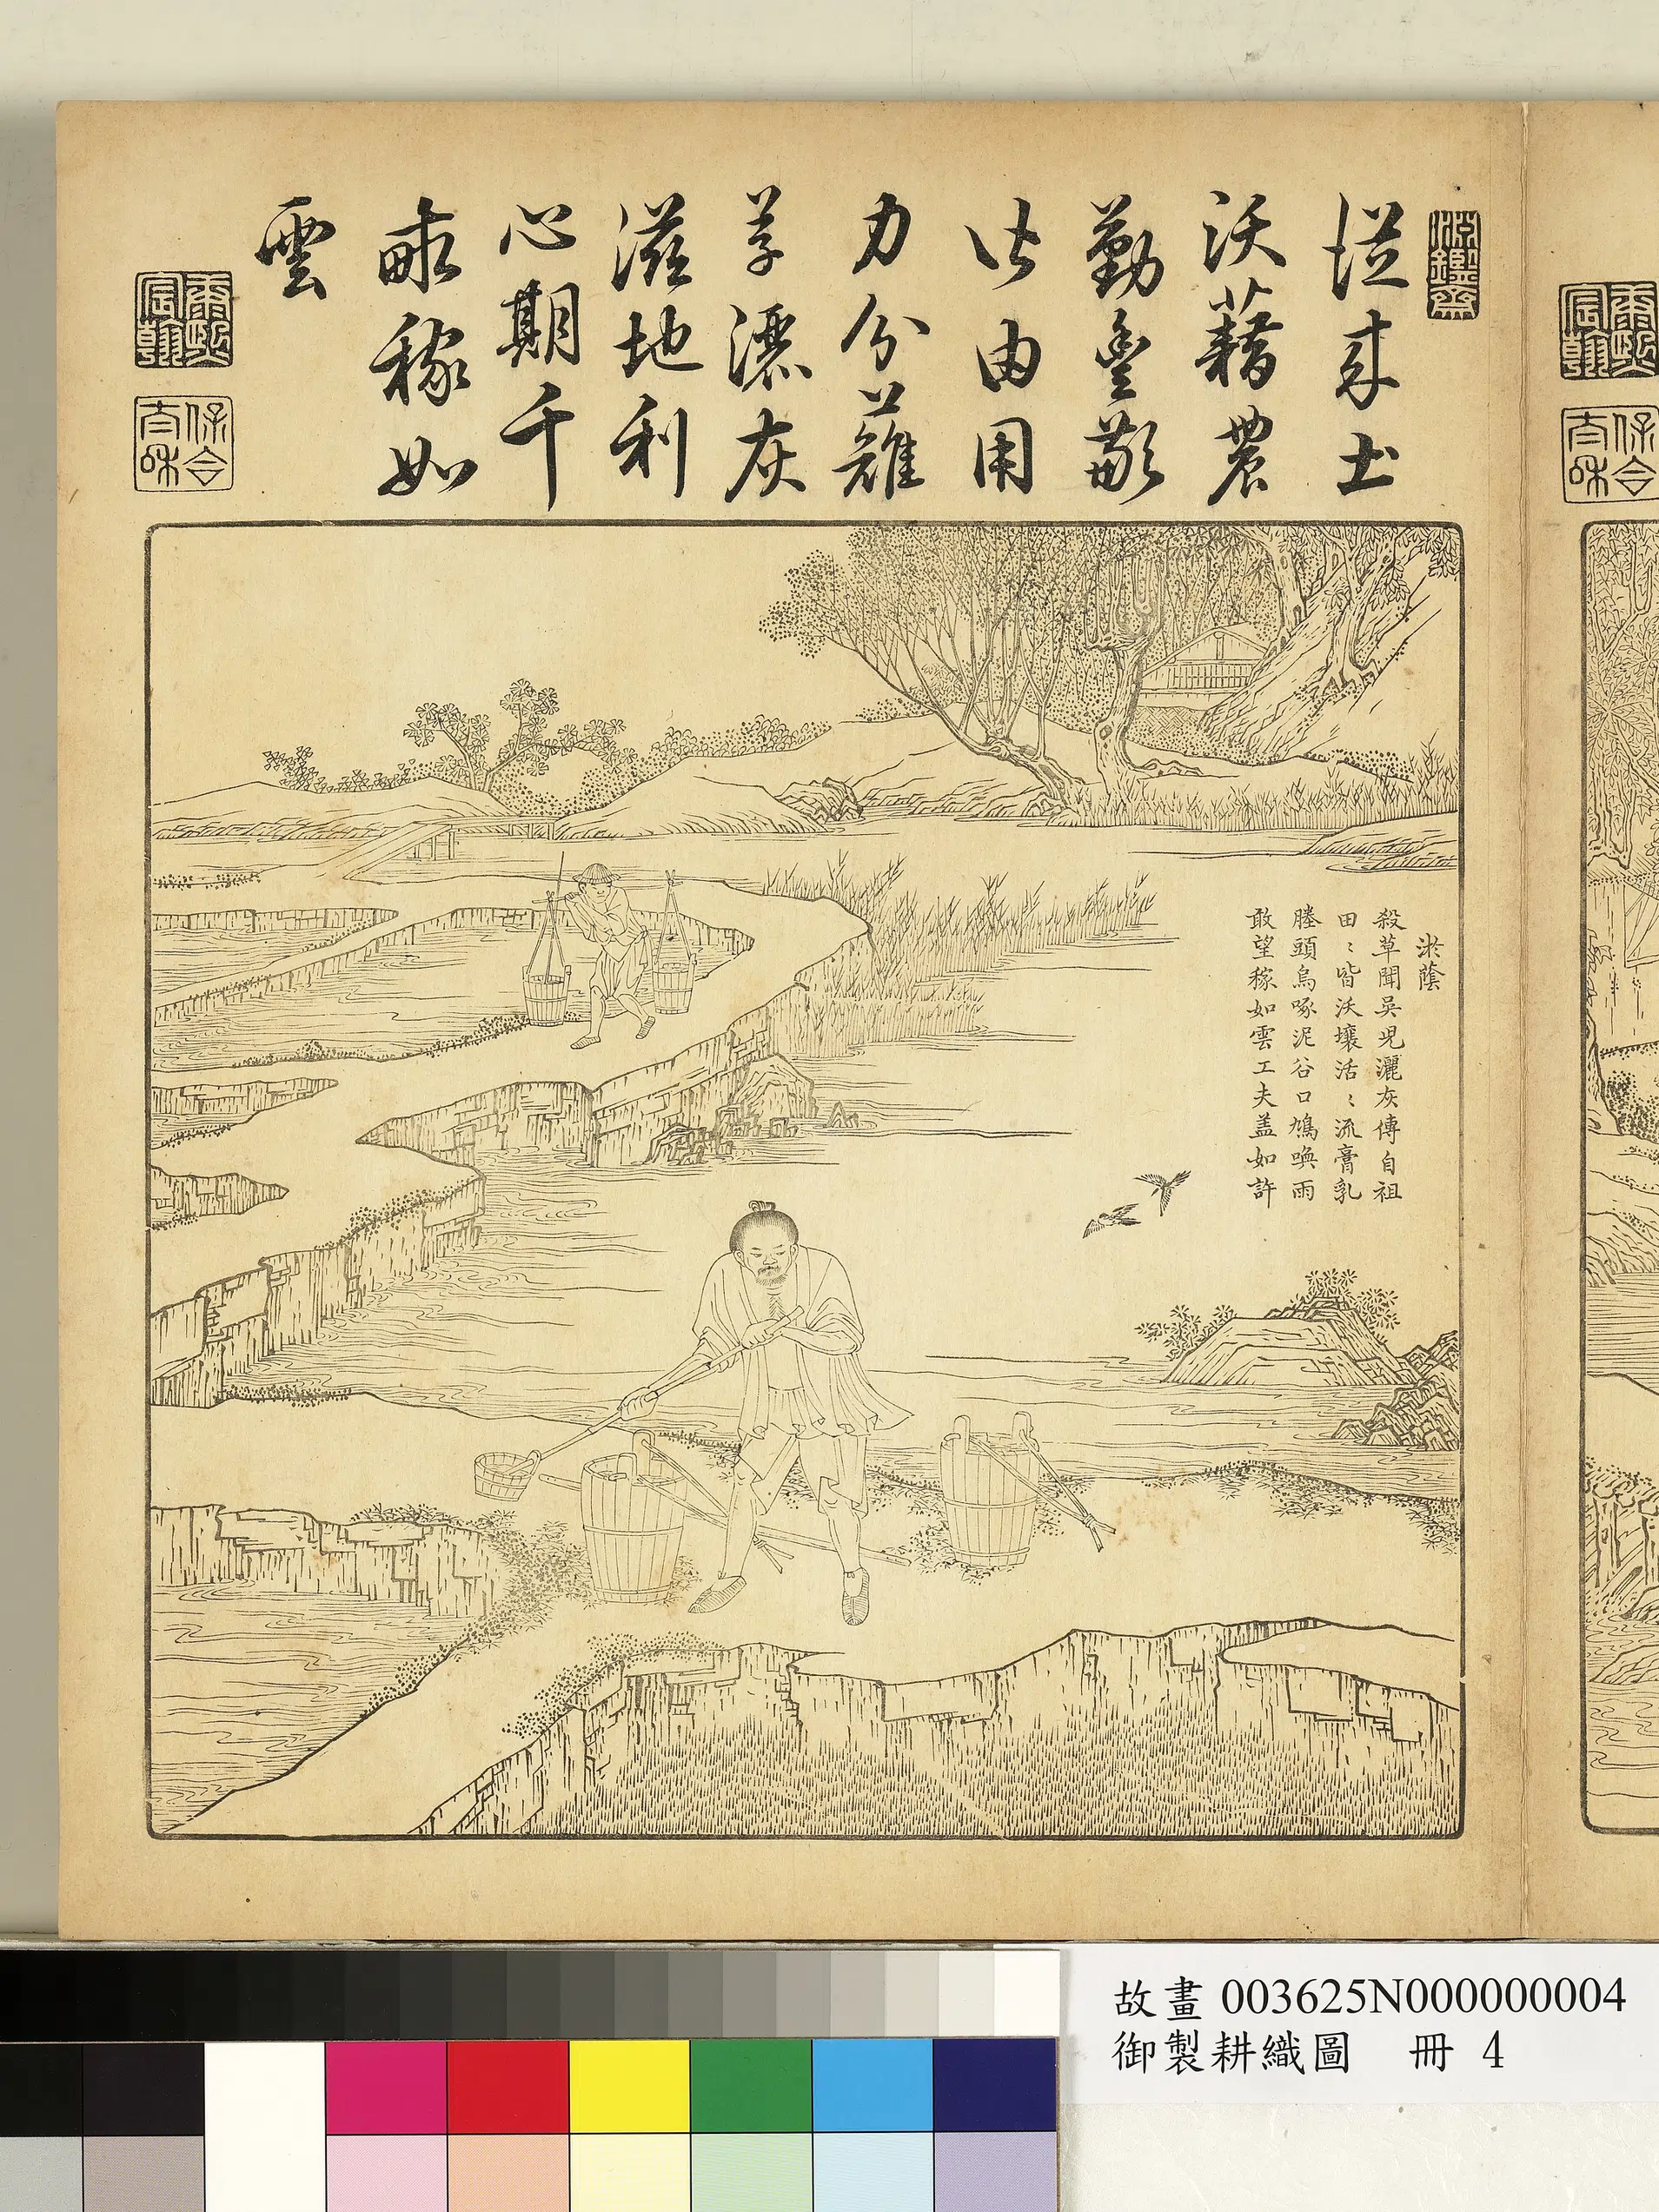 淵鑒齋
從來土
沃藉農
勤豐歉
皆由用
力分薙
草灑灰
滋地利
心期千
畝稼如
雲
康熙宸翰
保合太和
淤蔭
殺草聞吳兒灑灰傳自祖
田〻皆沃壤活〻流膏乳
塍頭烏啄泥谷口鳩喚雨
敢望稼如雲工夫盖如許
康熙宸翰
保合太和
故畫 003625N000000004
御製耕織圖 冊 4